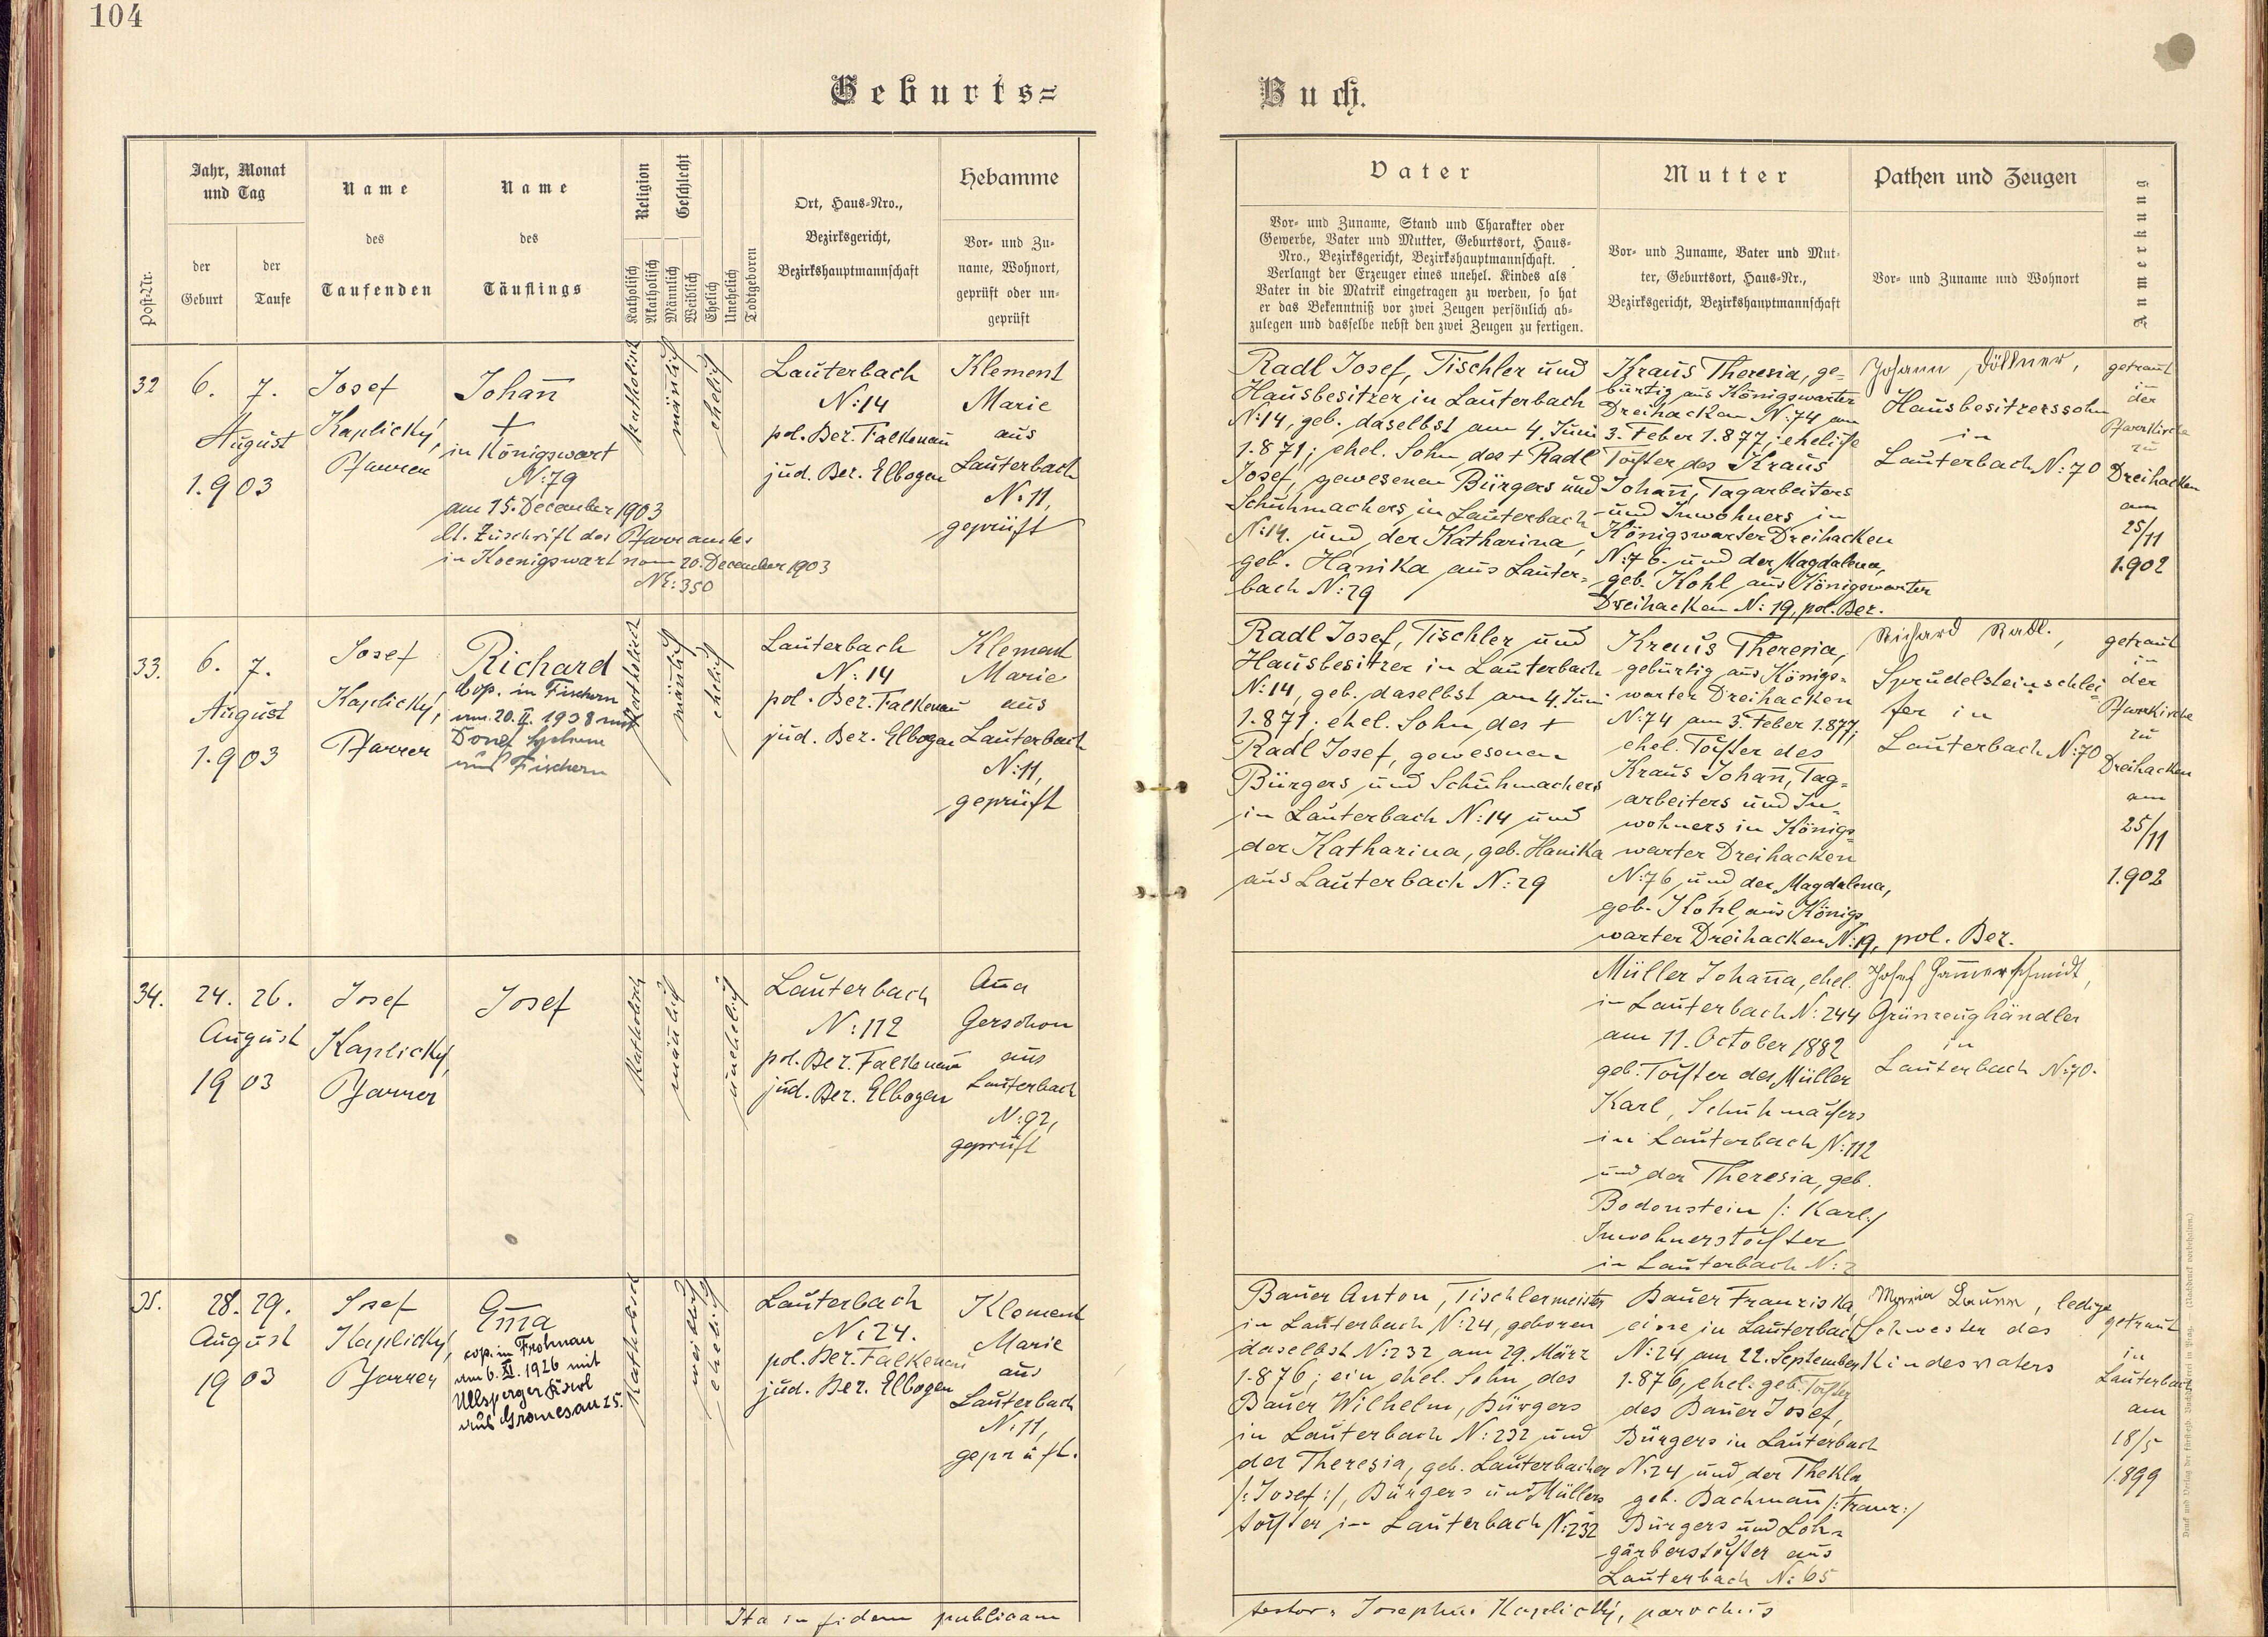 104
Geburts=
Buch.
Post-Nr.
Jahr, Monat
und Tag
der
Geburt
der
Taufe
Name
des
Taufenden
Name
des
Täuflings
Religion
Katholisch
Akatholisch
Geschlecht
Männlich
Weiblich
Ehelich
Unehelich
Todtgeboren
Ort, Haus-Nro.,
Bezirksgericht,
Bezirkshauptmannschaft
Hebamme
Vor- und Zu-
name, Wohnort,
geprüft oder un-
geprüft
Vater
Vor- und Zuname, Stand und Charakter oder
Gewerbe, Vater und Mutter, Geburtsort, Haus-
Nro., Bezirksgericht, Bezirkshauptmannschaft.
Verlangt der Erzeuger eines unehel. Kindes als
Vater in die Matrik eingetragen zu werden, so hat
er das Bekenntniß vor zwei Zeugen persönlich ab-
zulegen und dasselbe nebst den zwei Zeugen zu fertigen.
Mutter
Vor- und Zuname, Vater und Mut-
ter, Geburtsort, Haus-Nr.,
Bezirksgericht, Bezirkshauptmannschaft
Pathen und Zeugen
Vor- und Zuname und Wohnort
Anmerkung
32
6. 7.
August
1.903
Josef
Kaplický,
Pfarrer
Johañ
+
in Königswart
N:79
am 15. December 1903
lt. Zuschrift des Pfarramtes
in Koenigswart vom 20. December 1903
N͟E: 350
katholisch
mäñlich
ehelich
Lauterbach
N:14
pol. Bez. Falkenau
jud. Bez. Elbogen
Klement
Marie
aus
Lauterbach
N:11,
geprüft
Radl Josef, Tischler und
Hausbesitzer in Lauterbach
N:14, geb. daselbst am 4. Juni
1.871; ehel. Sohn des + Radl
Josef, gewesenen Bürgers und
Schuhmachers in Lauterbach
N:14. und der Katharina,
geb. Hanika aus Lauter-
bach N:29
Kraus Theresia, ge-
bürtig aus Königswarter
Dreihacken N:74 am
3. Feber 1.877; eheliche
Tochter des Kraus
Johañ, Tagarbeiters
und Inwohners in
Königswarter Dreihacken
N:76. und der Magdalena,
geb. Kohl aus Königswarter
Dreihacken N: 19, pol. Bez.
Johann Döllner,
Hausbesitzerssohn
in
Lauterbach N:70
getraut
in
der
Pfarrkirche
zu
Dreihacken
am
25/11
1.902
33.
6. 7.
August
1.903
Josef
Kaplický,
Pfarrer
Richard
Cop. in Fischern
am 20. II. 1938 mit
aus Fischern
katholisch
mäñlich
ehelich
Lauterbach
N:14
pol. Bez. Falkenau
jud. Bez. Elbogen
Klement
Marie
aus
Lauterbach
N:11,
geprüft
Radl Josef, Tischler und
Hausbesitzer in Lauterbach
N:14, geb. daselbst am 4. Juni
1.871; ehel. Sohn des +
Radl Josef, gewesenen
Bürgers und Schuhmachers
in Lauterbach N:14 und
der Katharina, geb. Hanika
aus Lauterbach N:29
Kraus Theresia,
gebürtig aus Königs-
warter Dreihacken
N:74 am 3. Feber 1.877;
ehel. Tochter des
Kraus Johañ, Tag-
arbeiters und In-
wohners in Königs-
warter Dreihacken
N:76 und der Magdalena,
geb. Kohl, aus Königs
warter Dreihacken N:19, pol. Bez.
Richard Radl,
Sprudelsteinschlei-
fer in
Lauterbach N:70
getraut
in
der
Pfarrkirche
zu
Dreihacken
am
25/11
1.902
34.
24. 26.
August
1903
Josef
Kaplický,
Pfarrer
Josef
Katholisch
mäñlich
unehelich
Lauterbach
N:112
pol. Bez. Falkenau
jud. Bez. Elbogen
Aña
Gerschon
aus
Lauterbach
N:92,
geprüft
Müller Johaña, ehel.
in Lauterbach N:244
am 11. October 1882
geb. Tochter des Müller
Karl, Schuhmachers
in Lauterbach N:112
und der Theresia, geb.
Bodenstein /: Karl:/
Inwohnerstochter
in Lauterbach N:2
Josef Ham̃erschmidt,
Grünzeughändler
in
Lauterbach N:70.
35.
28. 29.
August
1903
Josef
Kaplický,
Pfarrer
Em̃a
cop. in Frohnau
am 6. XI. 1926 mit
Ullsperger Karl
aus Gramesau 25.
Katholisch
weiblich
ehelich
Lauterbach
N:24.
pol. Bez. Falkenau
jud. Bez. Elbogen
Klement
Marie
aus
Lauterbach
N:11,
geprüft.
Bauer Anton, Tischlermeister
in Lauterbach N:24, geboren
daselbst N:232 am 29. März
1.876; ein ehel. Sohn des
Bauer Wilhelm, Bürgers
in Lauterbach N:232 und
der Theresia, geb. Lauterbacher
/: Josef :/, Bürgers und Müllers
tochter in Lauterbach N:232
Bauer Franziska,
eine in Lauterbach
N:24 am 22. September
1.876, ehel. geb. Tochter
des Bauer Josef,
Bürgers in Lauterbach
N:24 und der Thekla
geb. Bachmañ /: Franz :/
Bürgers und Loh-
gärberstochter aus
Lauterbach N: 65
Maria Bauer, ledige
Schwester des
Kindesvaters
getraut
in
Lauterbach
am
18/5
1.899
Ita in fidem publicam
testor: Josephus Kaplický, parochus
Druck und Verlag der fürsterzb. Buchdruckerei in Prag. (Nachdruck vorbehalten.)